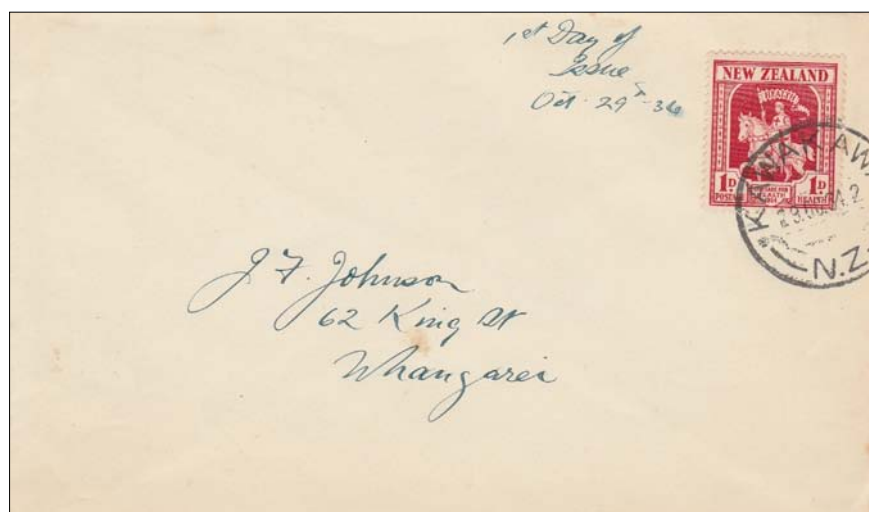 1st Day of
Issue
Oct. 29th-34
NEW ZEALAND
HEALTH
1D 1D
POSTAGE HEALTH
KAWAKAWA
29.OC.34.2
N.Z.
J. F. Johnson
62 King St
Whangarei